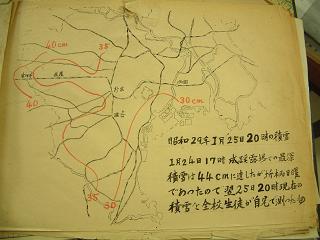 40cm
35
40
30cm
35
30
昭和29年1月25日20時の積雪
1月24日17時 成蹊露場での最深
積雪は44cmに達したが折柄日曜
であったので翌25日20時現在の
積雪を全校生徒が自宅で測った